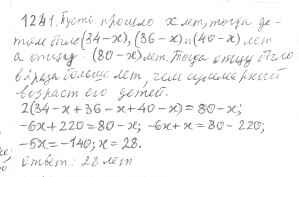 1241. Пусть прошло x лет, тогда де-
тям было (34-x), (36-x) и (40-x) лет
а отцу (80-x) лет. Тогда отцу было
в 2 раза больше лет, чем суммарный
возраст его детей.
2(34-x+36-x+40-x)=80-x;
-6x+220=80-x; -6x+x=80-220;
-5x=-140; x=28.
Ответ: 28 лет